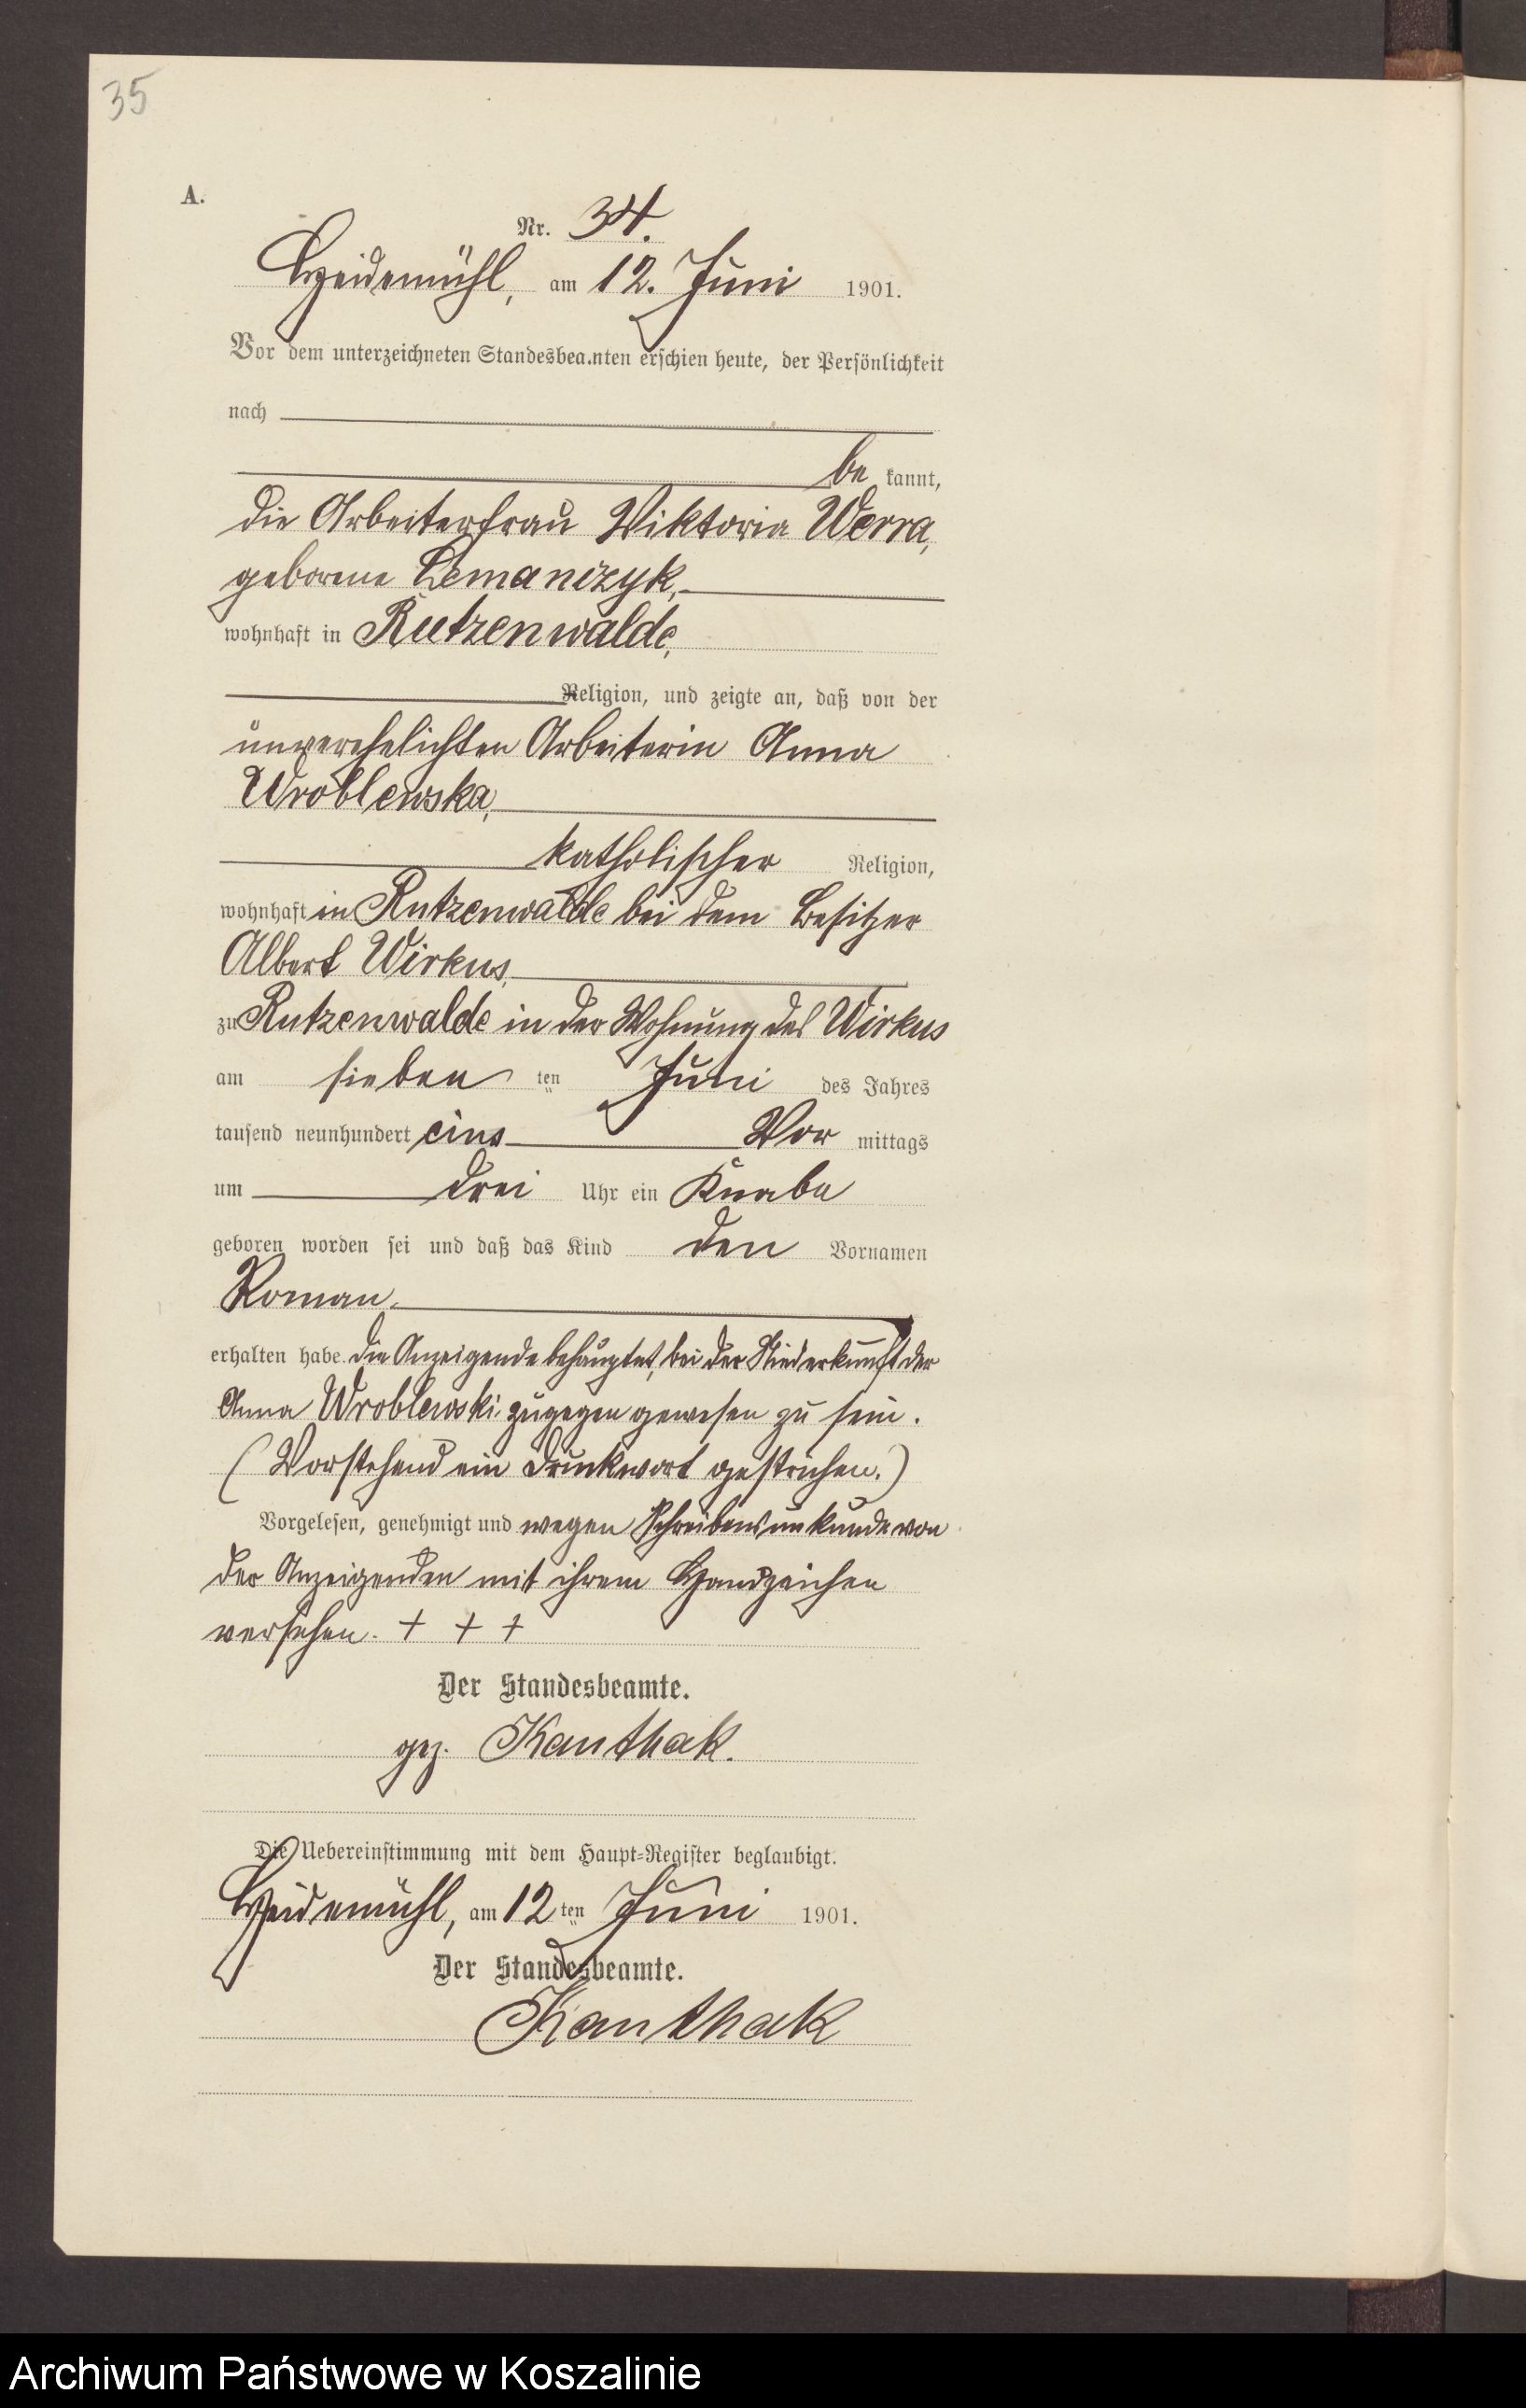 35
A.
Nr. 34.
Heidemühl, am 12. Juni 1901.
Vor dem unterzeichneten Standesbeamten erschien heute, der Persönlichkeit
nach
be kannt,
die Arbeiterfrau Viktoria Werra,
geborene Lemanczyk,
wohnhaft in Rutzenwalde,
Religion, und zeigte an, daß von der
unverehelichten Arbeiterin Anna
Wroblewska,
katholischer Religion,
wohnhaft in Rutzenwalde bei dem Besitzer
Albert Wirkus,
zu Rutzenwalde in der Wohnung des Wirkus
am sieben ten Juni des Jahres
tausend neunhundert eins Vor mittags
um drei Uhr ein Knabe
geboren worden sei und daß das Kind den Vornamen
Roman
erhalten habe. Die Anzeigende behauptet, bei der Niederkunft der
Anna Wroblewski zugegen gewesen zu sein.
(Vorstehend ein Druckwort gestrichen.)
Vorgelesen, genehmigt und wegen Schreibensunkunde von
der Anzeigenden mit ihrem Handzeichen
versehen. + + +
Der Standesbeamte.
gez. Kanthak.
Die Uebereinstimmung mit dem Haupt-Register beglaubigt.
Heidemühl, am 12 ten Juni 1901.
Der Standesbeamte.
Kanthak
Archiwum Państwowe w Koszalinie